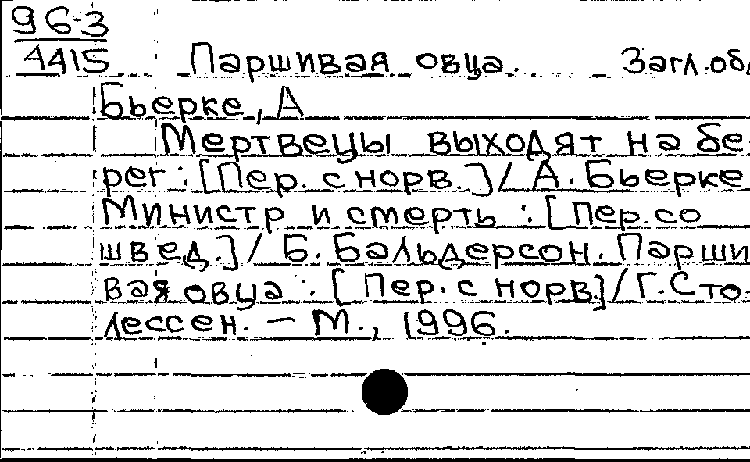 96-3
4415 Паршивая овца. Загл.об.
Бьерке, А
Мертвецы выходят на бе-
рег : [Пер. с норв.] / А. Бьерке
Министр и смерть : [Пер. со
швед.] / Б. Бальдерсон. Парши
вая овца : [Пер. с норв.] / Г. Сто-
лессен. — М., 1996.